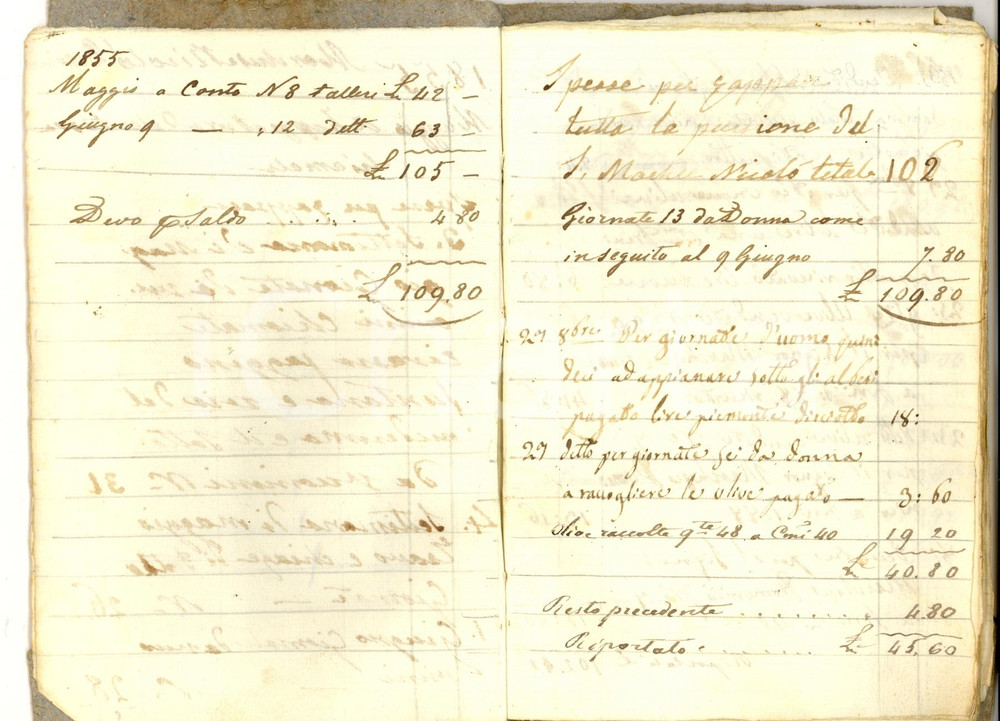 1855
Maggio a Conto N 8 talleri £ 42 –
Giugno 9 — " 12 dett. 63 –
£ 105 –
Devo p Saldo . . . . . . 4 80
£ 109.80
Spese per zappare
tutta la porzione del
S. Nicoló totale 102
Giornate 13 da Donna come
in seguito al 9 Giugno 7.80
£ 109.80
27 8bre Per giornate d'uomo quin
deci ad appianare sotto gli alberi
pagatto lire piemonte dieciotto 18:
27 detto per giornate sei da donna
a raccogliere le olive pagato — 3:60
Olive raccolte qte 48 a Cmi 40 19 20
£ 40.80
Resto precedente . . . . . . . . 4.80
Riportato . . . . . . £ 45.60